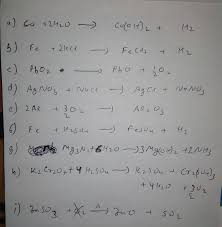 a) Ca + 2H₂O → Ca(OH)₂ + H₂
b) Fe + 2HCl → FeCl₂ + H₂
c) PbO₂ → PbO + ½O₂
d) AgNO₃ + NaCl → AgCl + NaNO₃
e) 2Al + 3/2 O₂ → Al₂O₃
f) Fe + H₂SO₄ → FeSO₄ + H₂
g) Mg₃N₂ + 6H₂O → 3Mg(OH)₂ + 2NH₃
h) K₂Cr₂O₇ + 4H₂SO₄ → K₂SO₄ + Cr₂(SO₄)₃
+ 4H₂O + 3/2 O₂
i) ZnSO₃ + Δ→ ZnO + SO₂